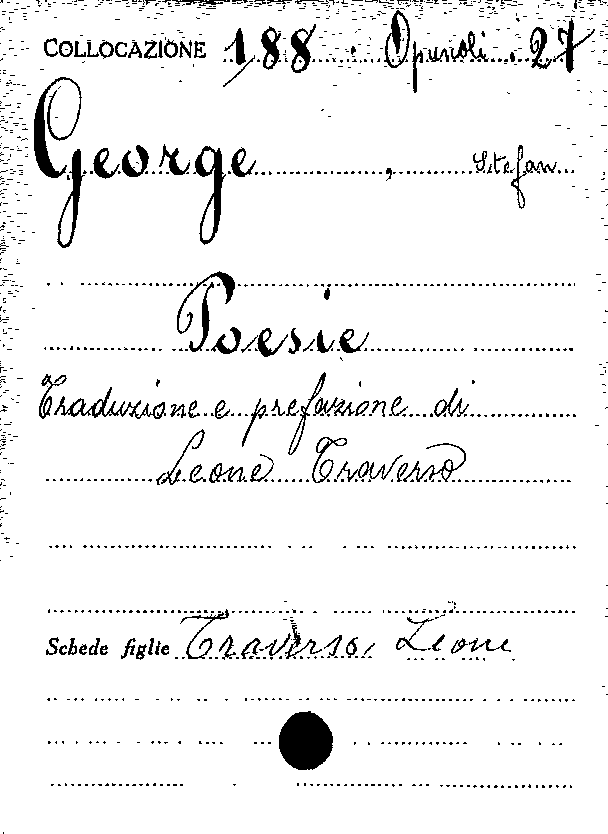 COLLOCAZIONE 188. Opuscoli. 27
George, Stefan
Poesie
Traduzione e prefazione di
Leone Traverso
Schede figlie Traverso, Leone